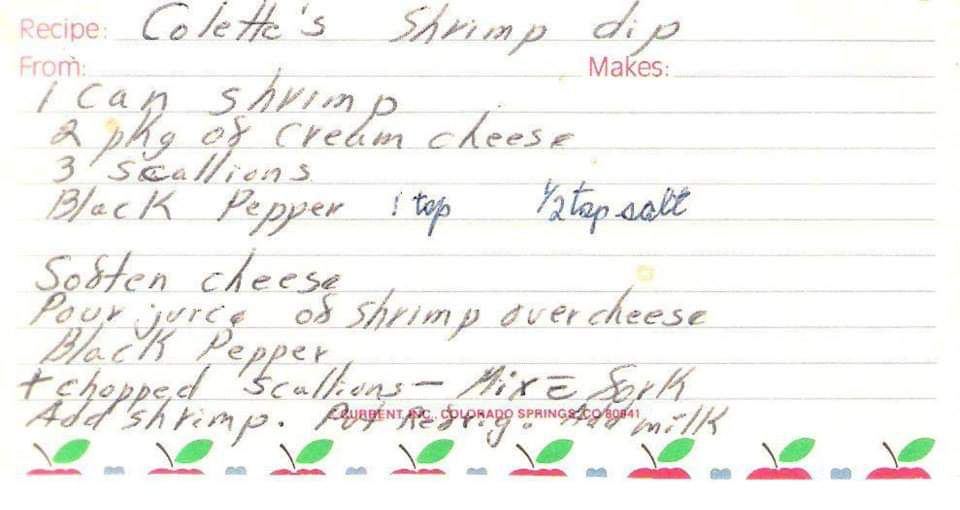 Recipe: Colette's Shrimp dip
From: Makes:
1 Can shrimp
2 pkg of Cream cheese
3 scallions
Black Pepper 1 tsp 1/2 tsp salt
Soften cheese
Pour juice of shrimp over cheese
Black Pepper
+ chopped scallions – Mix c̄ Fork
Add shrimp. Put Refrig. Add milk
CURRENT, INC., COLORADO SPRINGS, CO 80941